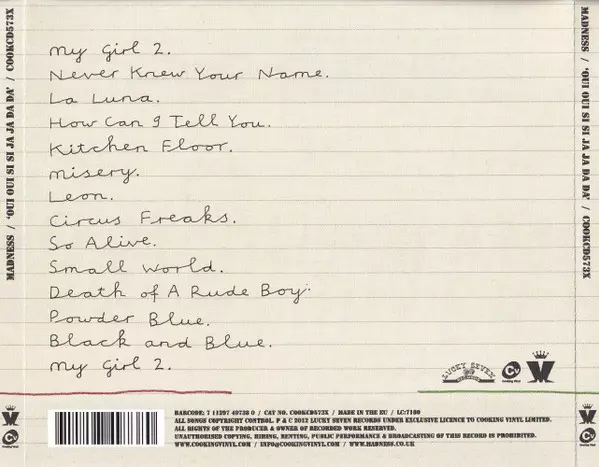 my Girl 2.
Never Knew Your Name.
La Luna.
How Can I Tell You.
Kitchen Floor.
misery.
Leon.
Circus Freaks.
So Alive.
Small World.
Death of A Rude Boy.
Powder Blue.
Black and Blue.
my Girl 2.
MADNESS / 'OUI OUI SI SI JA JA DA DA' / COOKCD573X
MADNESS / 'OUI OUI SI SI JA JA DA DA' / COOKCD573X
LUCKY SEVEN
Cooking Vinyl
M
BARCODE: 7 11297 49738 0 / CAT NO. COOKCD573X / MADE IN THE EU / LC:7180
ALL SONGS COPYRIGHT CONTROL. P & C 2012 LUCKY SEVEN RECORDS UNDER EXCLUSIVE LICENCE TO COOKING VINYL LIMITED.
ALL RIGHTS OF THE PRODUCER & OWNER OF RECORDED WORK RESERVED.
UNAUTHORISED COPYING, HIRING, RENTING, PUBLIC PERFORMANCE & BROADCASTING OF THIS RECORD IS PROHIBITED.
WWW.COOKINGVINYL.COM / INFO@COOKINGVINYL.COM / WWW.MADNESS.CO.UK